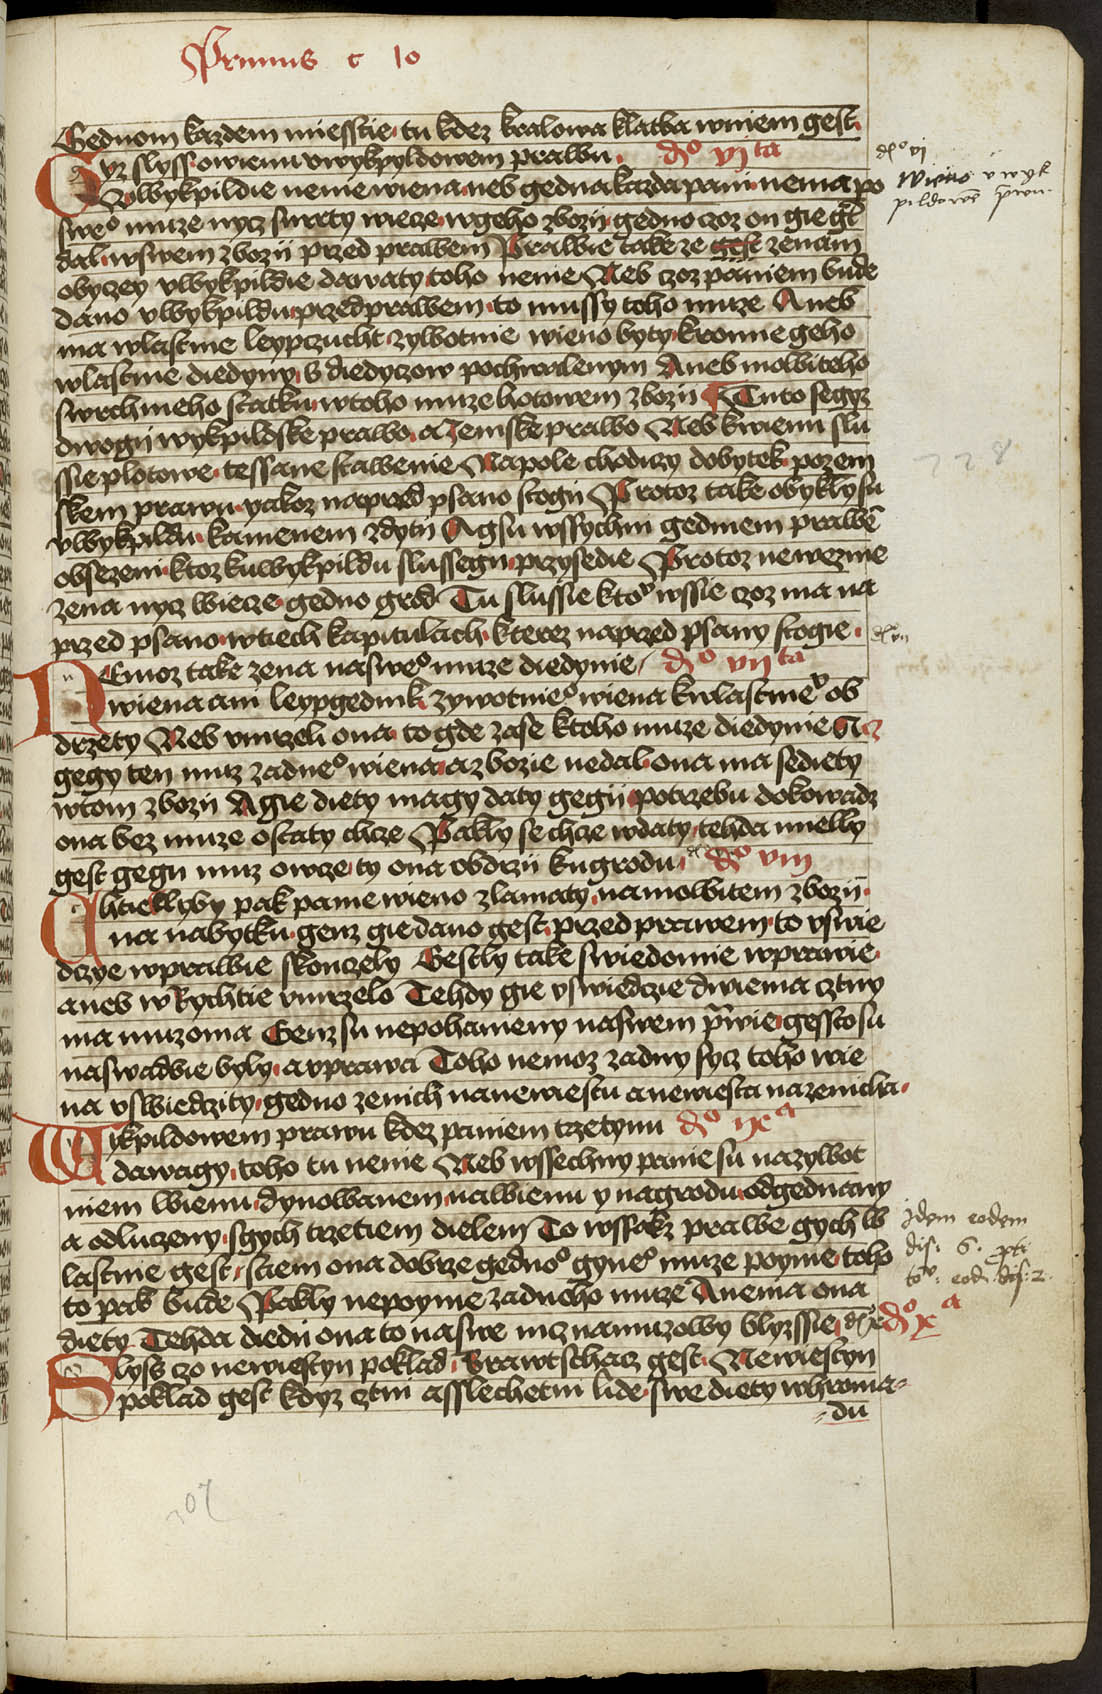 Primus c 10
Gednom kazdem miesstie tu kdez kralowa klatba wniem gest
Gyz slyss owienu wwykpyldowem prawu do vi ta
Wwykpildie nenie wiena neb gedna kazda pani nema po
sweo muze nycz smrty wiecze wgeho zbozij gedno czoz on gie gt
dal wswem zbozii przed prawem Prawie take ze gest zenam
obyczey vwykpildie dawaty toho nenie Neb czoz paniem bude
dano vwykpildu przed prawem to mussy toho muze Aneb
ma wlastnie leypczucht zywotnie wieno byty kromie geho
wlastnie diedyny s diedyczow pochwalenym Aneb mowiteho
swrchnieho statku wtoho muze hotowem zbozii Tuto segyz
dwogij wykpildske prawo a zemske prawo Neb kwienu slu
ssie plotowe tessane stawenie Napole chodiczy dobytek pozem
skem prawu yakoz naprzed psano stogij Protoz take obykly su
vwykpildu kamenem zdyti Agsu wssychni gedniem prawe
obsezeni ktoz kuwykpildu slussegij przysedie Protoz newezme
zena nycz wiecze gedno grad Tu slussie kto wssie czoz ma na
przed psano wtiech kapitulach kterez naprzed psany stogie
Nemoz take zena nasweo muze diedynie do vii ta
wiena ani leypgedink zywotnieo wiena kwlastnie ob
drzety Neb vmrzeli ona to gde zase ktoho muze diedynie A cz
gegy ten muz zadneo wiena azbozie nedal ona ma sediety
wtom zbozii Agie diety magy daty gegij potrzebu dokowadz
ona bez muze ostaty chcze Pakly se chcze wdaty tehda mielly
gest gegij muz owcze ty ona obdrzij kugrodu do viii
Chtiellyby pak panie wieno zlamaty namowitem zbozii
na nabytku genz gie dano gest przed prawem to vswie
dczye wprawie skonczely Gestly take swiedomie wprawie
aneb wRychtie vmrzelo Tehdy gie vswiedczie dwiema cztny
ma muzoma Genz su nepohaneny naswem prwie gesstosu
naswadbie byly avprawa Toho nemoz zadny sycz toho wie
na vswiedczity gedno zenich nanewiestu anewiesta nazenicha
Wykpildowem prawu kdez paniem trzetynu do ix a
dawagy toho tu nenie Neb wssechny panie su nazywot
niem wienu dynowanem nawienu y nagrodu odgednany
a odluczeny sgych trzetiem dielem To wssakz prawe gych w
lastnie gest stiem ona dobrze gednoo gyneo muze poymie toho
to pak bude Pakly nepoyme zadneho muze Anema ona
diety Tehda diedij ona to naswe niznamuzowy blyzssie do x a
Slyss czo newiestyn poklad Brawtschacz gest Newiestyn
poklad gest kdyz cztni asslechetni lide swe diety whroma
du
do vi
Wieno v wyk
pildowe prawu
do vii
228
Idem eodem
dis. 6. pti
to. eod. dis. 2.
307